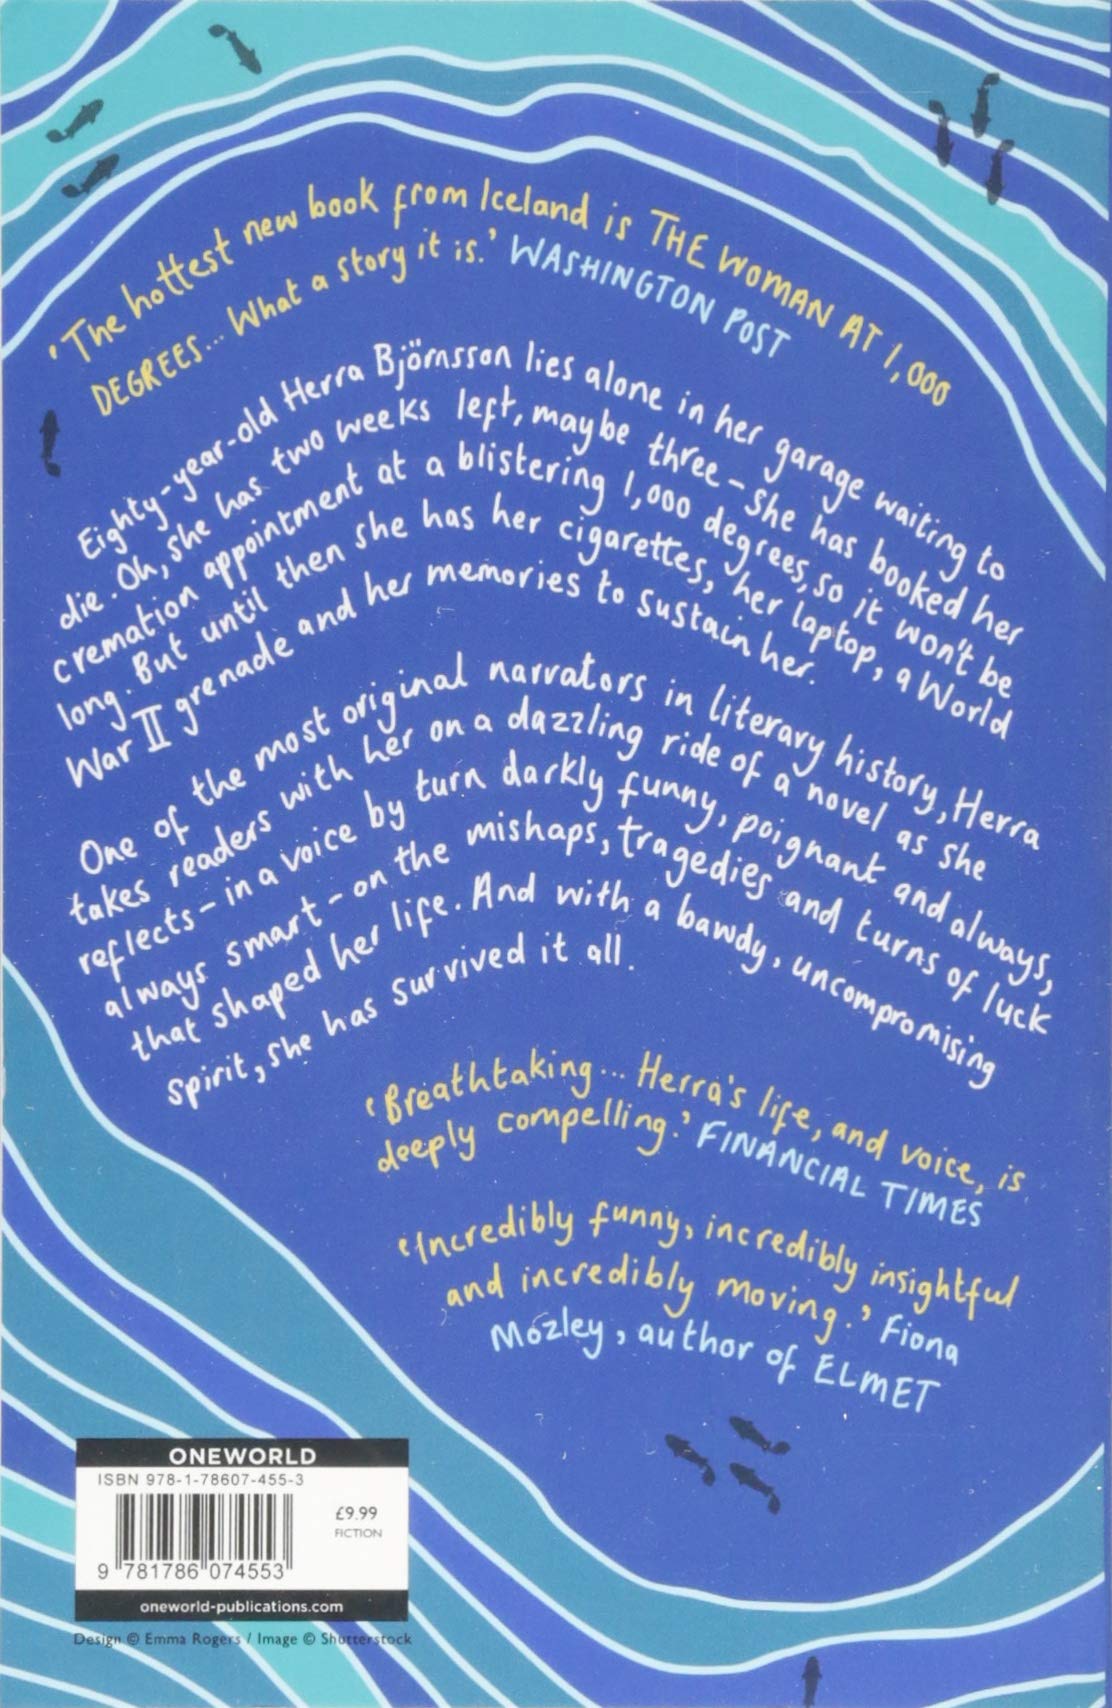 'The hottest new book from Iceland is THE WOMAN AT 1,000
DEGREES... What a story it is.' WASHINGTON POST
Eighty-year-old Herra Björnsson lies alone in her garage waiting to
die. Oh, she has two weeks left, maybe three – she has booked her
cremation appointment at a blistering 1,000 degrees, so it won't be
long. But until then she has her cigarettes, her laptop, a World
War II grenade and her memories to sustain her.
One of the most original narrators in literary history, Herra
takes readers with her on a dazzling ride of a novel as she
reflects – in a voice by turn darkly funny, poignant and always,
always smart – on the mishaps, tragedies and turns of luck
that shaped her life. And with a bawdy, uncompromising
spirit, she has survived it all.
'Breathtaking... Herra's life, and voice, is
deeply compelling.' FINANCIAL TIMES
'Incredibly funny, incredibly insightful
and incredibly moving.' Fiona
Mozley, author of ELMET
ONEWORLD
ISBN 978-1-78607-455-3
£9.99
FICTION
9 781786 074553
oneworld-publications.com
Design © Emma Rogers / Image © Shutterstock